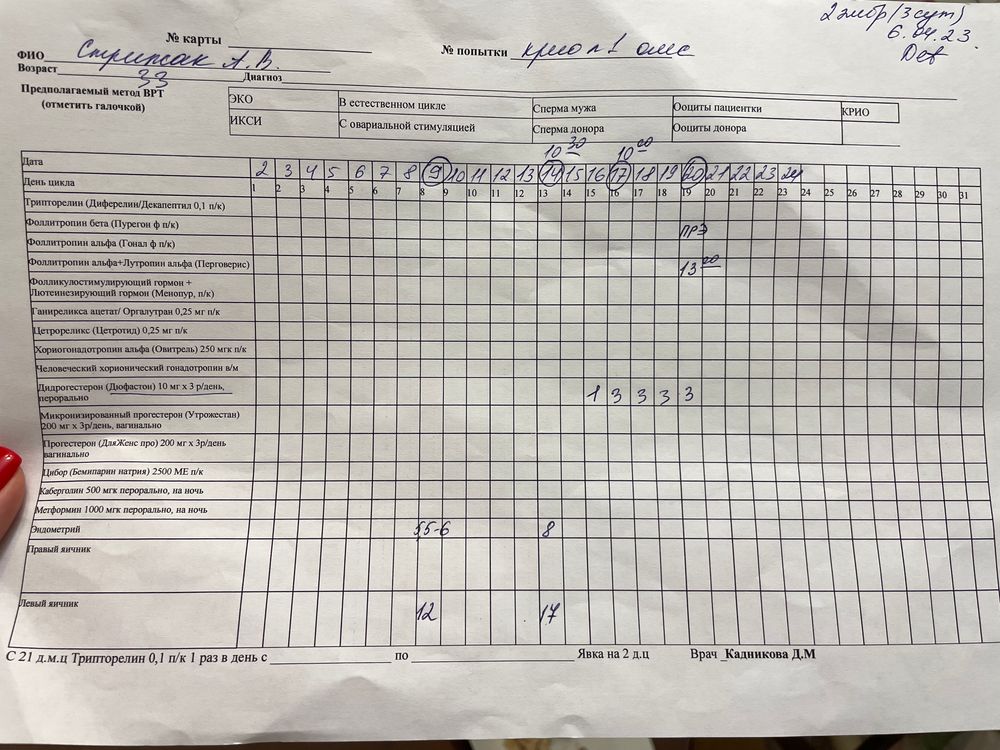 2 эмбр (3 сут)
6.04.23.
№ карты
№ попытки крио п 1 омс
ФИО Стрижак А.В.
Возраст 33 Диагноз
Предполагаемый метод ВРТ
(отметить галочкой)
ЭКО В естественном цикле Сперма мужа Ооциты пациентки КРИО
ИКСИ С овариальной стимуляцией Сперма донора Ооциты донора
10 30 10 00
Дата 2 3 4 5 6 7 8 9 10 11 12 13 14 15 16 17 18 19 20 21 22 23 24
День цикла 1 2 3 4 5 6 7 8 9 10 11 12 13 14 15 16 17 18 19 20 21 22 23 24 25 26 27 28 29 30 31
Трипторелин (Диферелин/Декапептил 0,1 п/к)
Фоллитропин бета (Пурегон ф п/к) ПРЭ
Фоллитропин альфа (Гонал ф п/к)
Фоллитропин альфа+Лутропин альфа (Перговерис) 13 00
Фолликулостимулирующий гормон +
Лютеинезирующий гормон (Менопур, п/к)
Ганиреликса ацетат/ Оргалутран 0,25 мг п/к
Цетрореликс (Цетротид) 0,25 мг п/к
Хориогонадотропин альфа (Овитрель) 250 мгк п/к
Человеческий хорионический гонадотропин в/м
Дидрогестерон (Дюфастон) 10 мг х 3 р/день,
перорально 1 3 3 3 3
Микронизированный прогестерон (Утрожестан)
200 мг х 3р/день, вагинально
Прогестерон (ДляЖенс про) 200 мг х 3р/день
вагинально
Цибор (Бемипарин натрия) 2500 МЕ п/к
Каберголин 500 мгк перорально, на ночь
Метформин 1000 мгк перорально, на ночь
Эндометрий 5,5-6 8
Правый яичник
Левый яичник 12 17
С 21 д.м.ц Трипторелин 0,1 п/к 1 раз в день с по Явка на 2 д.ц Врач Кадникова Д.М